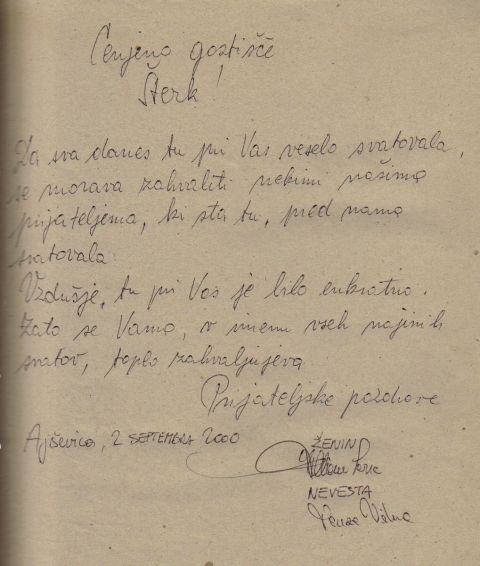 Cenjeno gostišče
Šterk!
Da sva danes tu pri Vas veselo svatovala,
se morava zahvaliti nekimi našima
prijateljema, ki sta tu, pred nama
svatovala.
Vzdušje, tu pri Vas je bilo enkratno.
Zato se Vama, v imenu vseh najinih
svatov, toplo zahvaljujeva
Prijateljske pozdrave
Ajševica, 2 SEPTEMBRA 2000
ŽENIN
NEVESTA